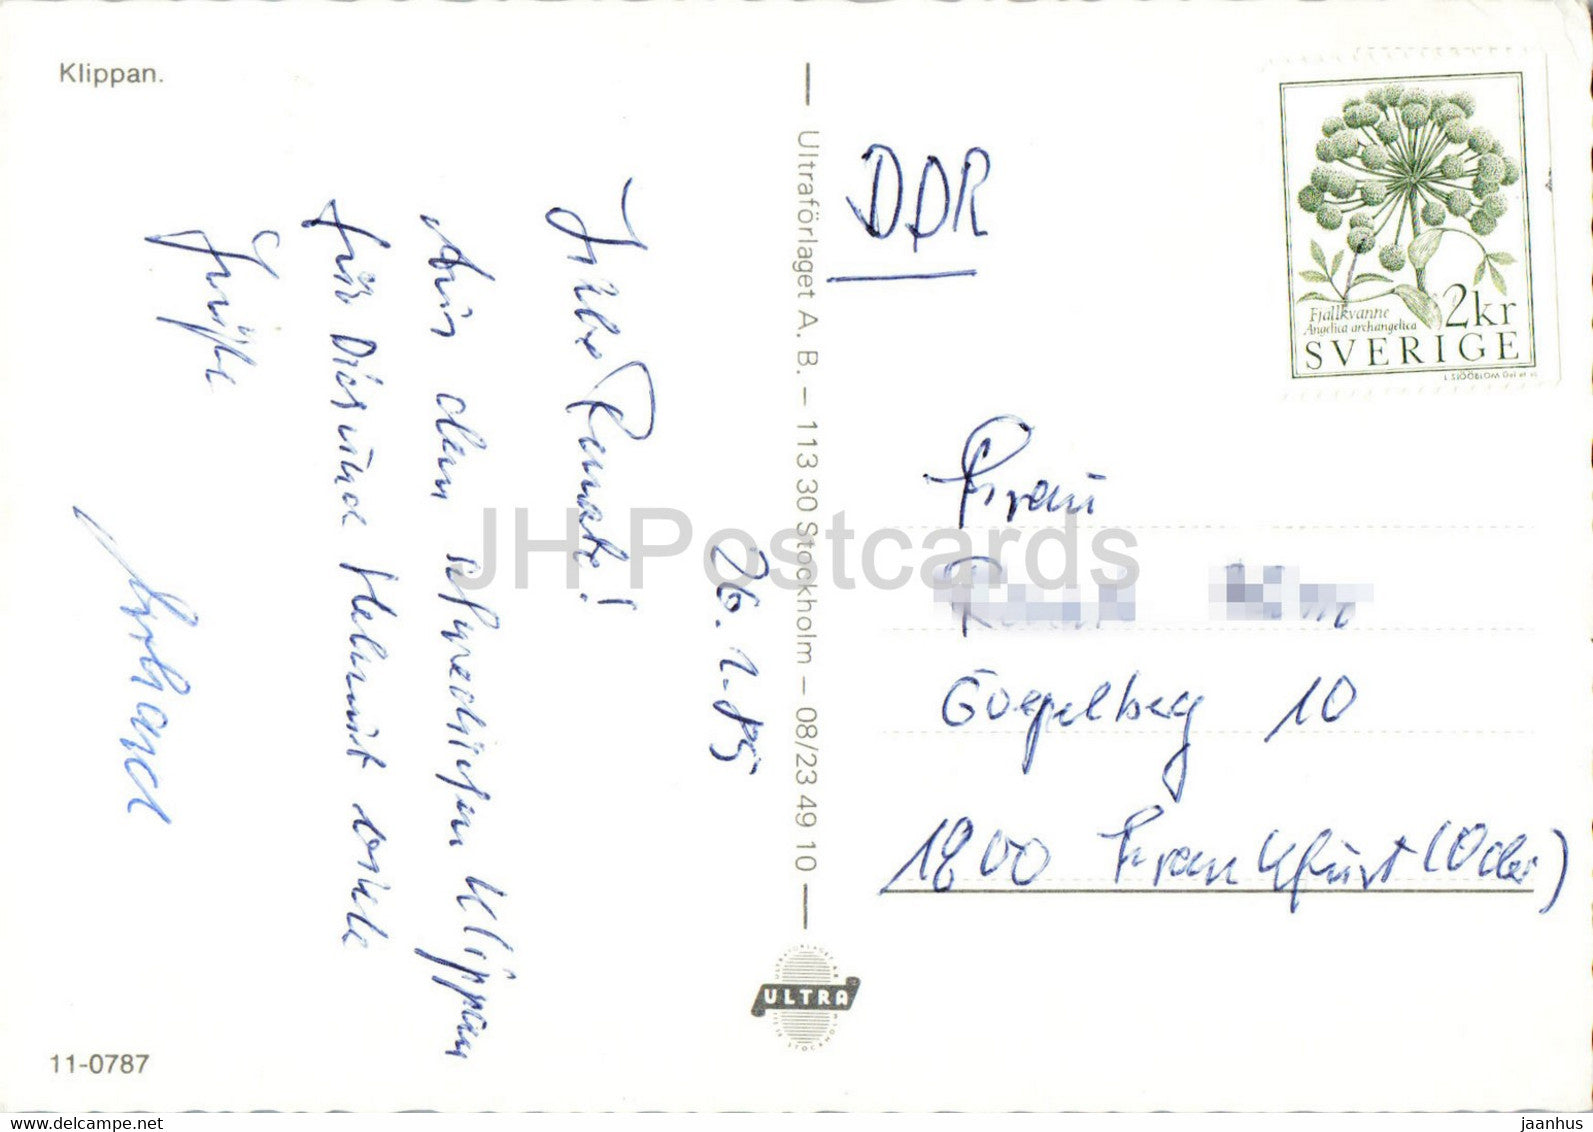 Klippan.
26.1.85
Liebe Renate!
Aus dem schwedischen Klippan
für Dich und Helmut viele
Grüße
Gerhard
11-0787
Ultraförlaget A.B. – 113 30 Stockholm – 08/23 49 10
ULTRA
DDR
Fjällkvanne
Angelica archangelica
2kr
SVERIGE
Frau
Goepelberg 10
1200 Frankfurt (Oder)
JH Postcards
www.delcampe.net
jaanhus